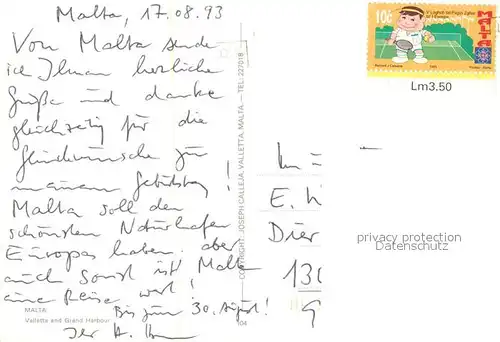 Malta, 17.08.93
Von Malta sende
ich Ihnen herzliche
Grüße und danke
gleichzeitig für die
Glückwünsche zu
meinem Geburtstag!
Malta soll den
schönsten Naturhafen
Europas haben. aber
auch sonst ist Malta
eine Reise wert!
Bis zum 30. August!
Ihr H.
MALTA
Valletta and Grand Harbour
104
COPYRIGHT: JOSEPH CALLEJA, VALLETTA, MALTA. — TEL: 227018
10c
MALTA
Lm3.50
E.
130
privacy protection
Datenschutz